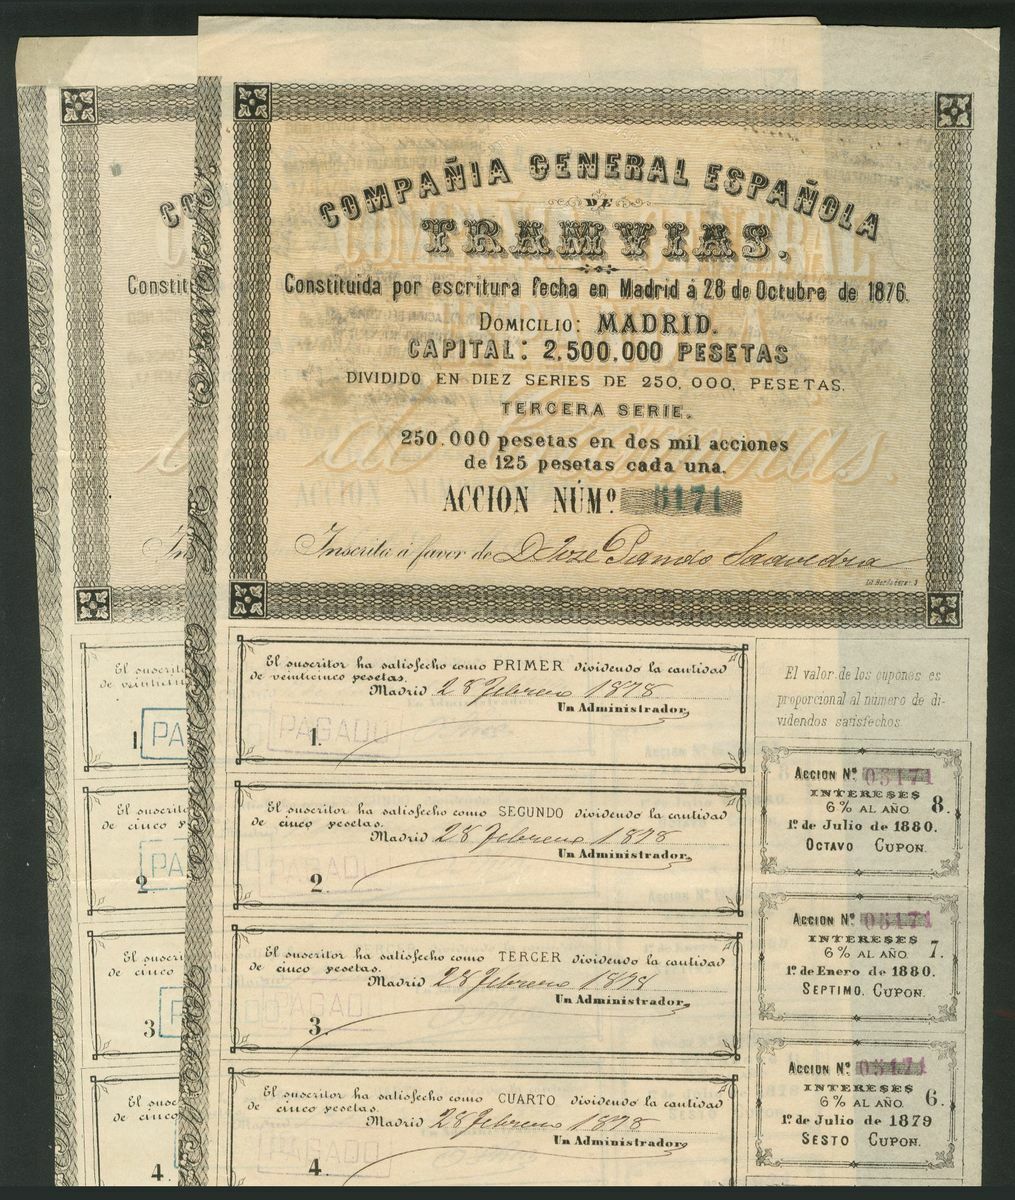 COMPAÑIA GENERAL ESPAÑOLA
DE
TRAMVIAS.
Constituida por escritura fecha en Madrid á 28 de Octubre de 1876.
DOMICILIO: MADRID.
CAPITAL: 2.500,000 PESETAS
DIVIDIDO EN DIEZ SERIES DE 250,000, PESETAS.
TERCERA SERIE.
250.000 pesetas en dos mil acciones
de 125 pesetas cada una.
ACCION NÚMº 5171
Inscrita á favor de D. José Pando Saavedra
CO
Constit
In
El suscritor ha satisfecho como PRIMER dividendo la cantidad
de veinticinco pesetas.
Madrid 28 Febrero 1878
Un Administrador,
1.
PAGADO
El suscritor ha satisfecho como SEGUNDO dividendo la cantidad
de cinco pesetas.
Madrid 28 Febrero 1878
Un Administrador,
2.
PAGADO
El suscritor ha satisfecho como TERCER dividendo la cantidad
de cinco pesetas.
Madrid 28 Febrero 1878
Un Administrador,
3.
PAGADO
El suscritor ha satisfecho como CUARTO dividendo la cantidad
de cinco pesetas.
Madrid 28 Febrero 1878
Un Administrador,
4.
PAGADO
El valor de los cupones es
proporcional al número de di-
videndos satisfechos
ACCION Nº 05171
INTERESES
6% AL AÑO 8.
1º de Julio de 1880.
OCTAVO CUPON.
ACCION Nº 05171
INTERESES
6% AL AÑO. 7.
1º de Enero de 1880.
SEPTIMO. CUPON.
ACCION Nº 05171
INTERESES
6% AL AÑO. 6.
1º de Julio de 1879
SESTO CUPON.
El suscrito
de veinticin
1. PA
El suscrito
de cinco p
2 PA
El suscrit
de cinco
3
El susc
de cinco
4.